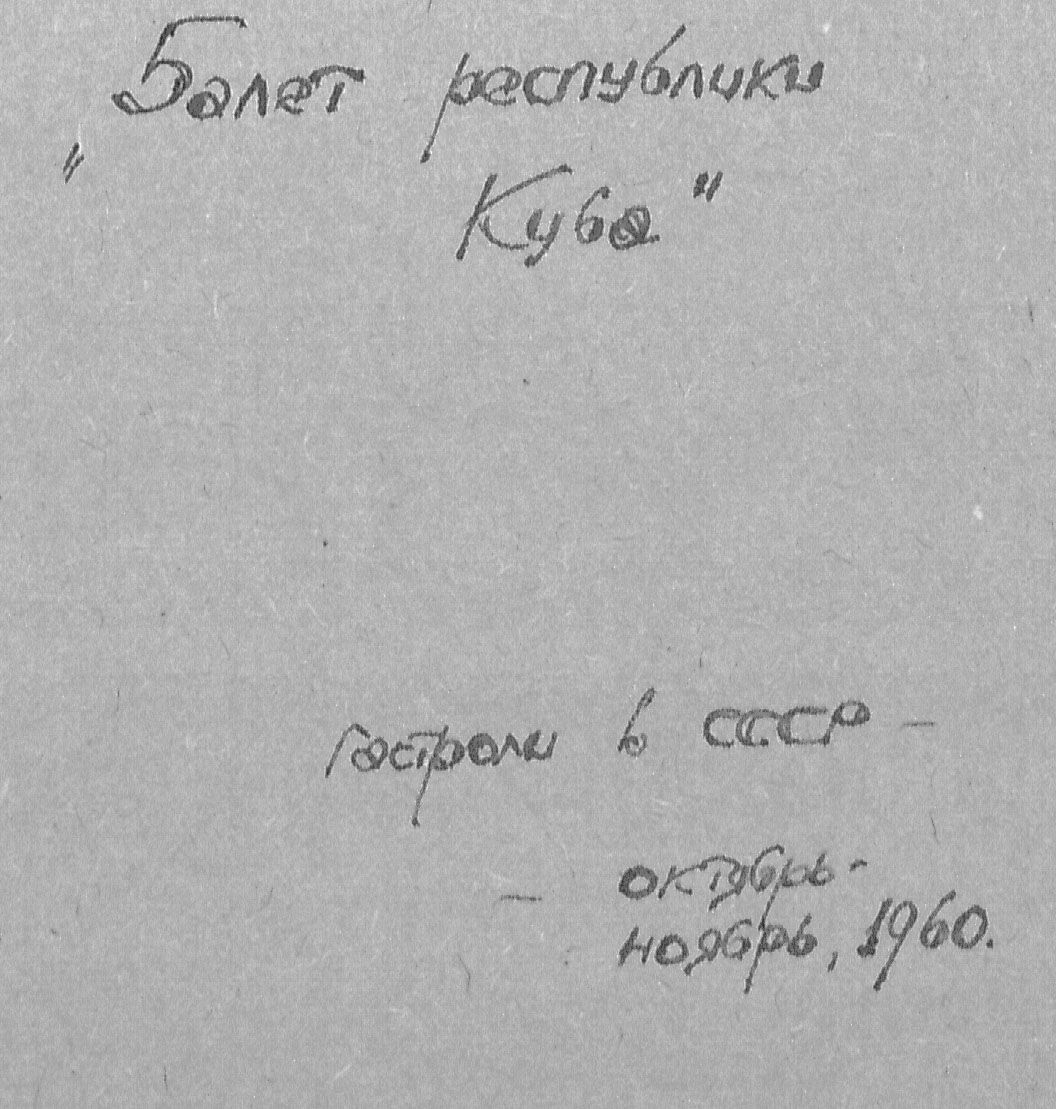 "Балет республики
Куба"
гастроли в СССР –
– октябрь-
ноябрь, 1960.